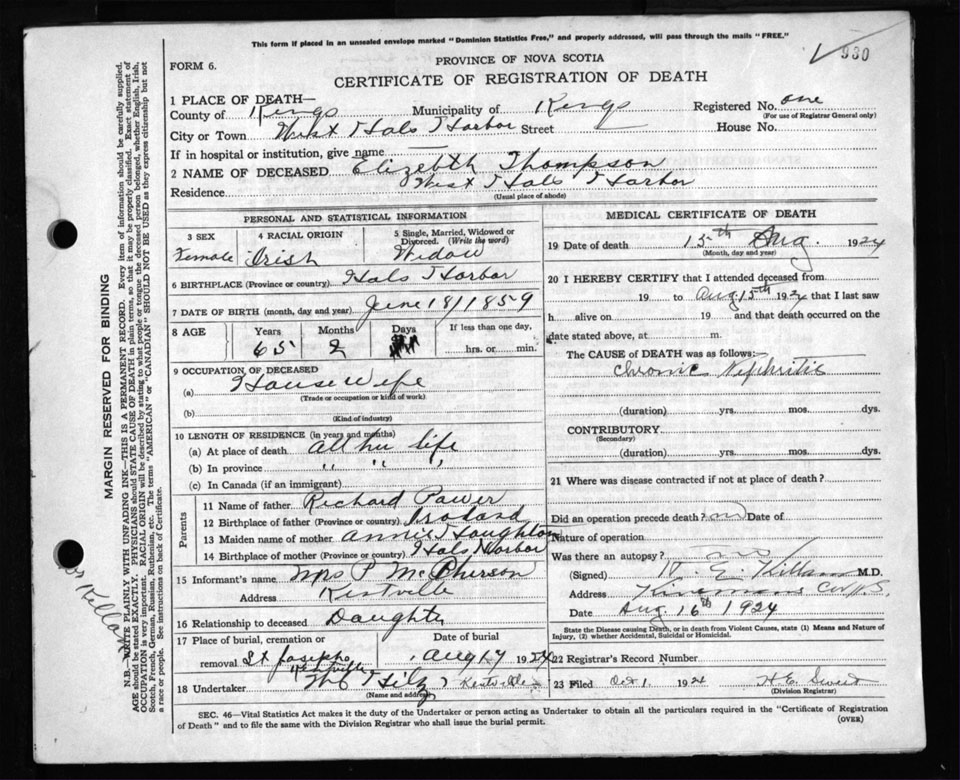 This form if placed in an unsealed envelope marked "Dominion Statistics Free," and properly addressed, will pass through the mails "FREE."
930
FORM 6.
PROVINCE OF NOVA SCOTIA
CERTIFICATE OF REGISTRATION OF DEATH
1 PLACE OF DEATH—
County of Kings Municipality of Kings Registered No. one
(For use of Registrar General only)
City or Town West Hals Harbor Street House No.
If in hospital or institution, give name —
2 NAME OF DECEASED Elizebth Thompson
Residence West Hals Harbor
(Usual place of abode)
PERSONAL AND STATISTICAL INFORMATION
3 SEX
Female
4 RACIAL ORIGIN
Irish
5 Single, Married, Widowed or Divorced. (Write the word)
Widow
6 BIRTHPLACE (Province or country) Hals Harbor
7 DATE OF BIRTH (month, day and year) June 18/1859
8 AGE Years Months Days If less than one day,
65 2 hrs. or min.
9 OCCUPATION OF DECEASED
(a) House wife
(Trade or occupation or kind of work)
(b)
(Kind of industry)
10 LENGTH OF RESIDENCE (in years and months)
(a) At place of death all her life
(b) In province " " "
(c) In Canada (if an immigrant)
Parents
11 Name of father Richard Power
12 Birthplace of father (Province or country)
13 Maiden name of mother Annie Houghton
14 Birthplace of mother (Province or country) Hals Harbor
15 Informant's name Mrs P McPherson
Address Kentville
16 Relationship to deceased Daughter
17 Place of burial, cremation or removal St Josephs Kentville
Date of burial Aug 17 1924
18 Undertaker Hiltz Kentville
(Name and address)
MEDICAL CERTIFICATE OF DEATH
19 Date of death 15th Aug. 1924
(Month, day and year)
20 I HEREBY CERTIFY that I attended deceased from
19 to Aug 15th 1924 that I last saw
h alive on 19 and that death occurred on
date stated above, at m.
The CAUSE OF DEATH was as follows:
Chronic Nephritis
(duration) yrs. mos. dys.
CONTRIBUTORY
(Secondary)
(duration) yrs. mos. dys.
21 Where was disease contracted if not at place of death?
Did an operation precede death? no Date of
Nature of operation
Was there an autopsy? no
(Signed) W. E. Killam M.D.
Address Kinsmans Cor N.S.
Date Aug 16th 1924
State the Disease causing Death, or in death from Violent Causes, state (1) Means and Nature of Injury, (2) whether Accidental, Suicidal or Homicidal.
22 Registrar's Record Number
23 Filed Oct 1 1924 H E
(Division Registrar)
SEC. 46—Vital Statistics Act makes it the duty of the Undertaker or person acting as Undertaker to obtain all the particulars required in the "Certificate of Registration
of Death" and to file the same with the Division Registrar who shall issue the burial permit.
(OVER)
MARGIN RESERVED FOR BINDING
N.B.—WRITE PLAINLY WITH UNFADING INK—THIS IS A PERMANENT RECORD. Every item of information should be carefully supplied.
AGE should be stated EXACTLY. PHYSICIANS should STATE CAUSE OF DEATH in plain terms, so that it may be properly classified. Exact statement of
OCCUPATION is very important. RACIAL ORIGIN will be described by stating to what people or tongue the deceased person belonged, whether English, Irish,
Scotch, French, German, Russian, Ruthenian, etc. The terms "AMERICAN" or "CANADIAN" SHOULD NOT BE USED as they express citizenship but not
a race or people. See instructions on back of Certificate.